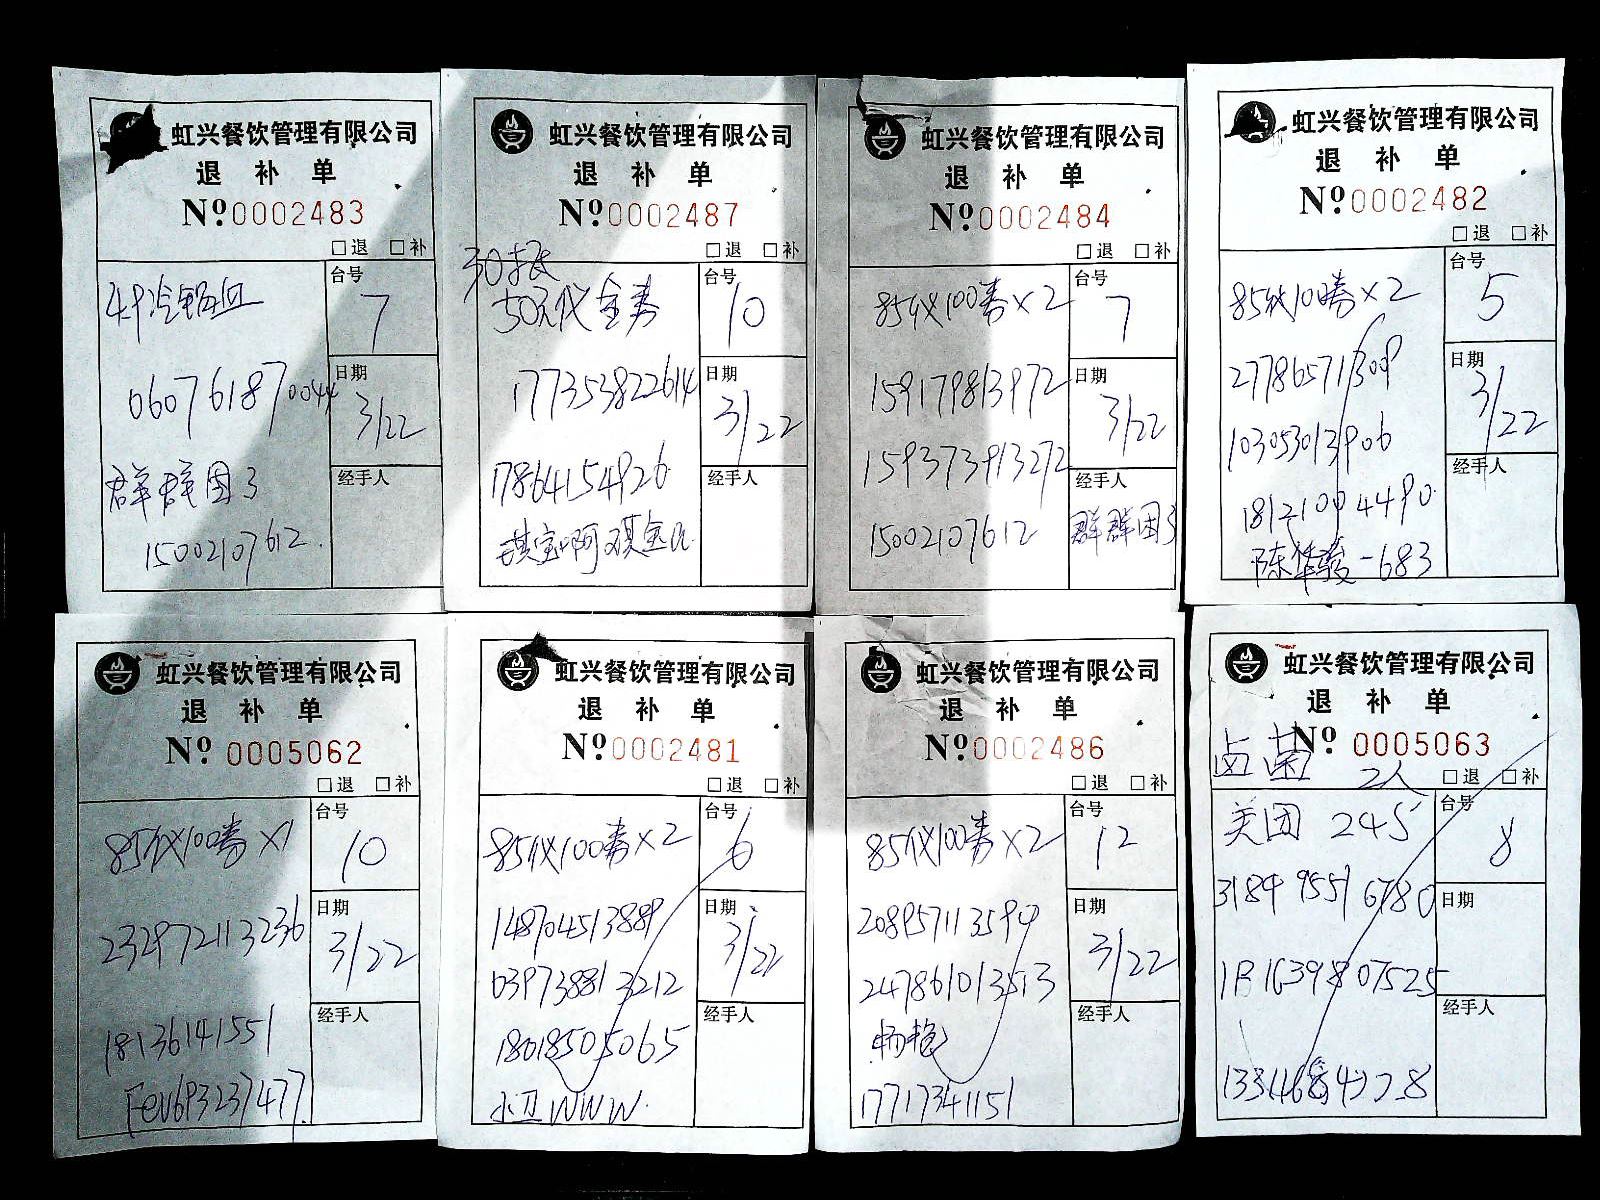 虹兴餐饮管理有限公司
退 补 单
Nº 0002483
□退 □补
4.9冷锅血
台号
7
060761870044
日期
3/22
群群困3
经手人
15002107612.
虹兴餐饮管理有限公司
退 补 单
Nº 0002487
□退 □补
30抵
50元代金券
台号
10
177353822614
日期
3/22
17864154926
经手人
虹兴餐饮管理有限公司
退 补 单
Nº 0002484
□退 □补
85代100券×2
台号
7
159179813972
日期
3/22
159373913272
经手人
15002107612
群群困3
虹兴餐饮管理有限公司
退 补 单
Nº 0002482
□退 □补
85代100券×2
台号
5
277865711309
日期
3/22
103053013906
经手人
18121004490.
陈华骏-683
虹兴餐饮管理有限公司
退 补 单
Nº 0005062
□退 □补
85代100券×1
台号
10
232972113236
日期
3/22
经手人
18136141551
Feu693237477.
虹兴餐饮管理有限公司
退 补 单
Nº 0002481
□退 □补
85代100券×2
台号
6
148704513889
日期
3/22
039738813212
经手人
18018505065
小卫WWW.
虹兴餐饮管理有限公司
退 补 单
Nº 0002486
□退 □补
85代100券×2
台号
12
208957113594
日期
3/22
247861013513
经手人
17717341151
虹兴餐饮管理有限公司
退 补 单
Nº 0005063
卤菌
2人
□退 □补
美团 245
台号
8
3184 9551 6780
日期
经手人